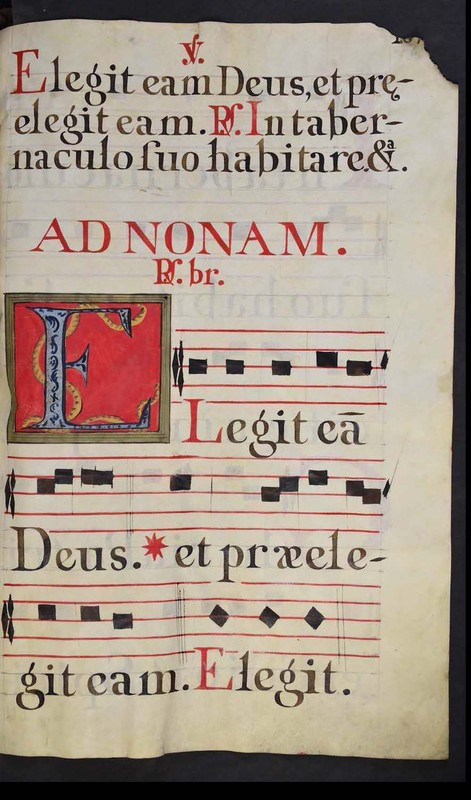 ℣.
Elegit eam Deus, et prę-
elegit eam. ℟. In taber-
naculo ſuo habitare. &ª.
AD NONAM.
℟. br.
ELegit eā
Deus. * et præele-
git eam. Elegit.